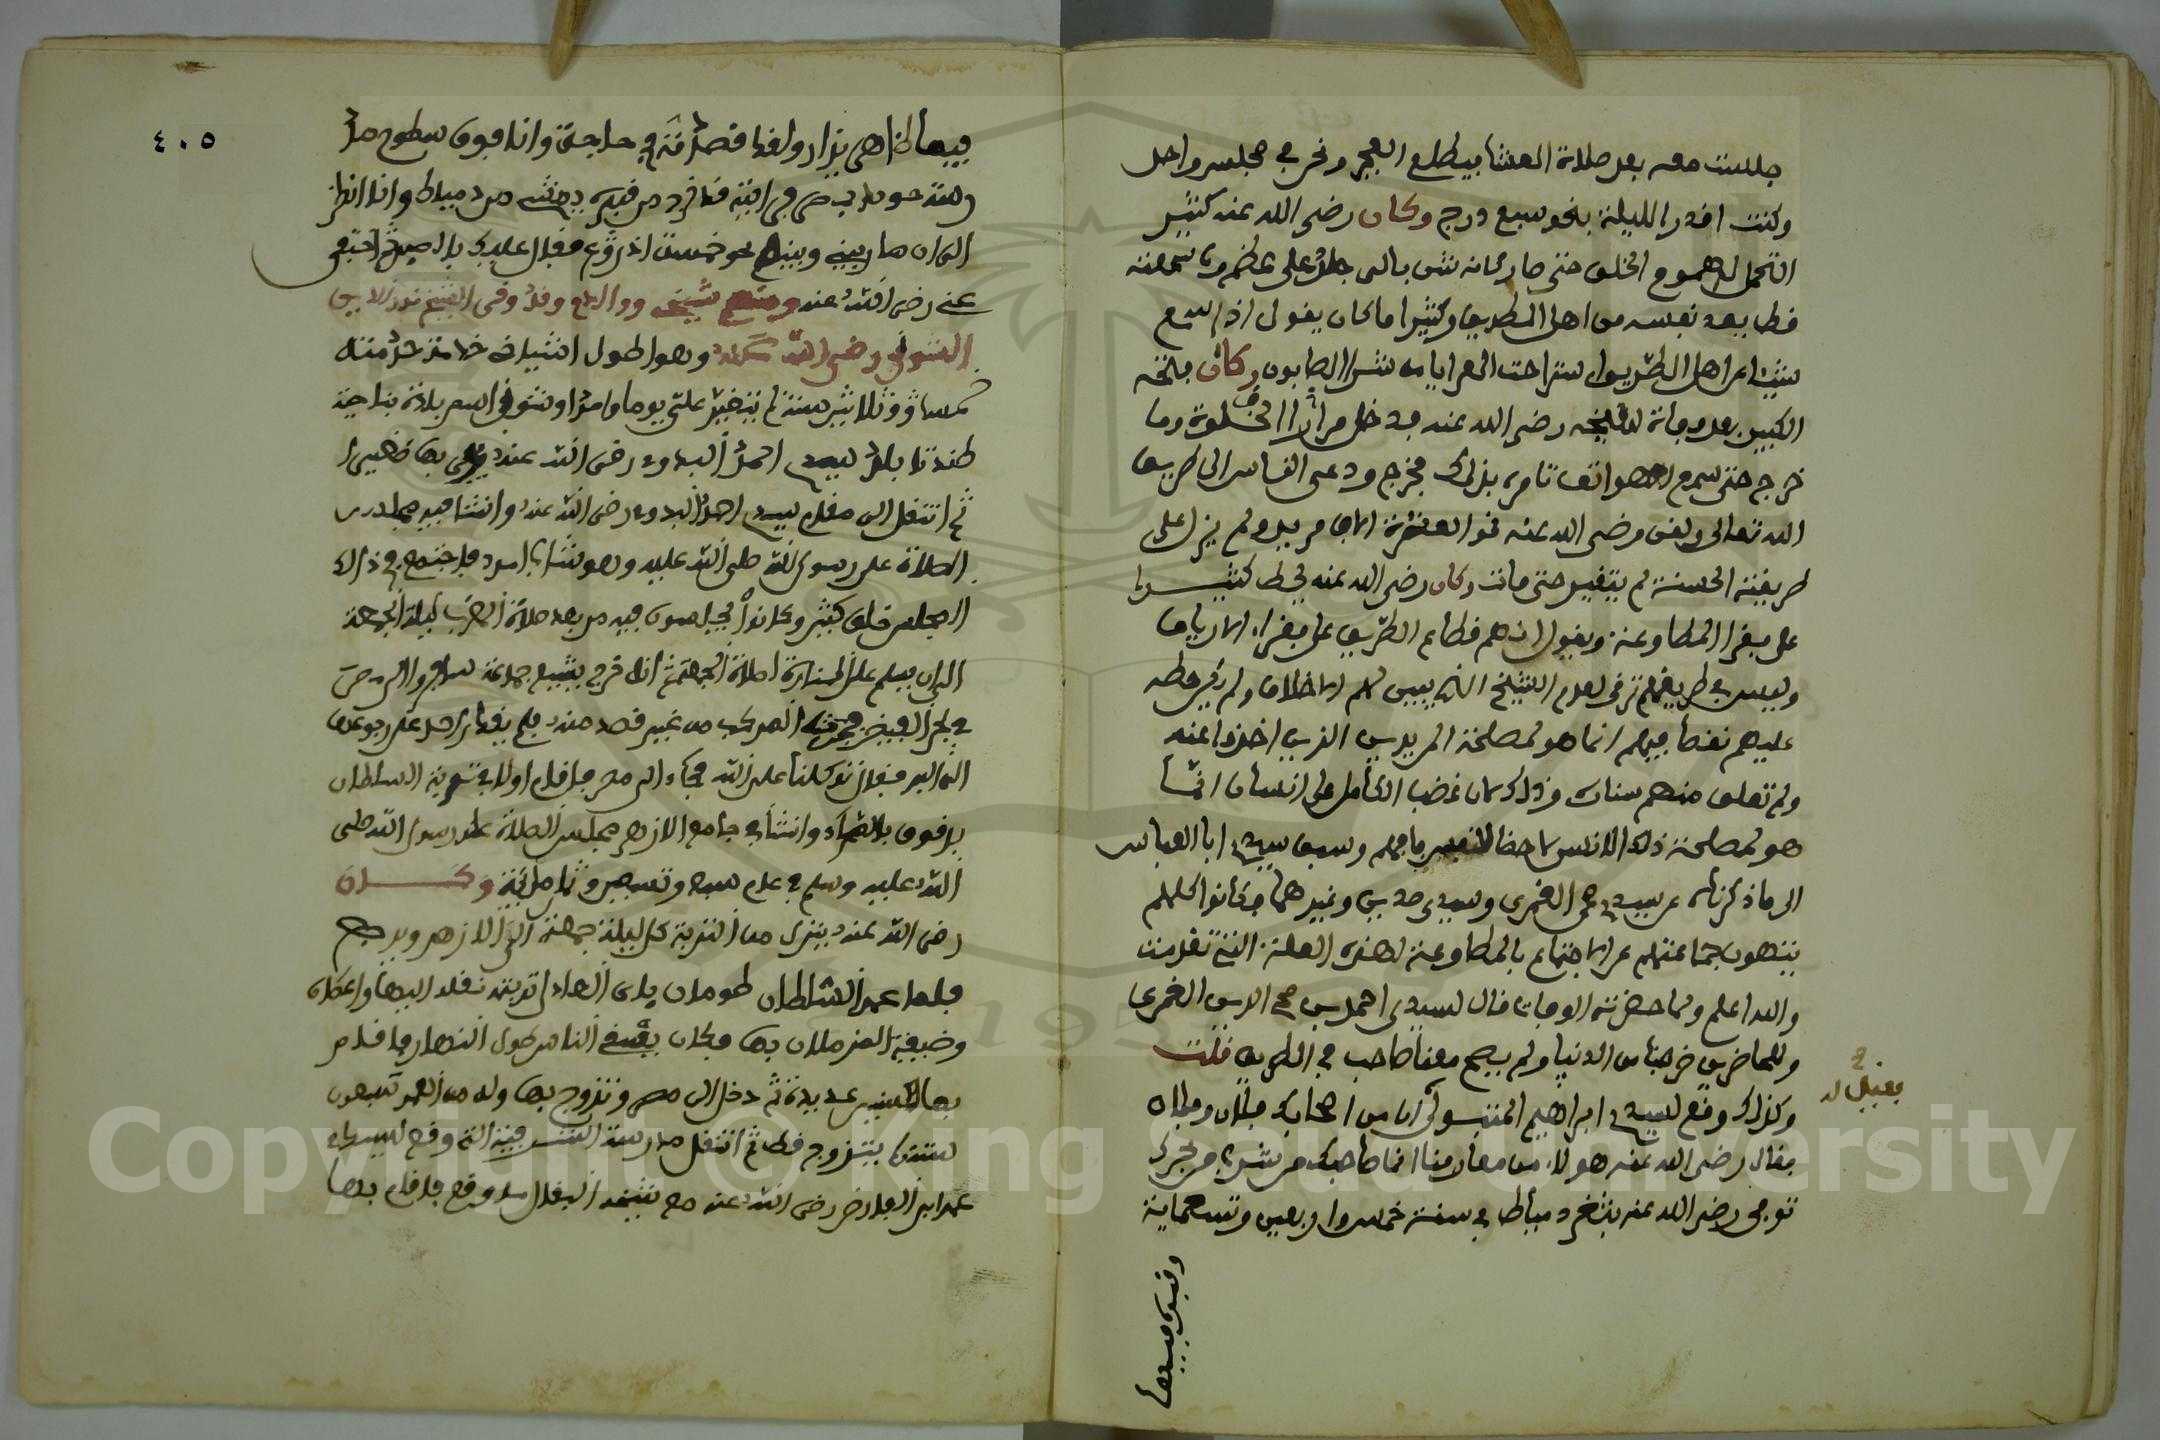 جلست معه بعد صلاة العشا فيطلع الفجر ونحن في مجلس واحد
وكنت اقدر الليلة بنحو سبع درج وكان رضي الله عنه كثير
التحمل لهموم الخلق حتى صار كانه شن بالي جلد على عظم وما سمعته
قط يعد نفسه من اهل الطريق وكثيرا ما كان يقول اذا سمع
شيئا عن اهل الطريق استراحت العرايا من شرا الصابون وكان
الكبير بعد وفاة شيخه رضي الله عنه فدخل مرارا الخلوة وما
خرج حتى سمع الهواتف تامره بذلك فخرج ودعى الناس الى طريق
الله تعالى ولقن رضي الله عنه نحو العشرة الاف مريد ولم يزل على
طريقته الحسنة لم يتغير حتى مات وكان رضي الله عنه يحط كثيرا
على فقرا المطاوعة ويقول انهم قطاع الطريق على فقراء الارياف
وليس في طريقهم ترقي لعدم الشيخ الذي يبين لهم الاخلاق ولم يكن حطه
عليهم نقصا فيهم انما هو لمصلحة المريدين الذين اخذوا عنه
ولم تعلق منهم سنارة وذلك لان غضب الكامل على انسان انما
هو لمصلحة ذلك الانسان لا حظا لنفس فافهم وسبق سيدي ابا العباس
الى ما ذكرناه عن سيدي محمد الغمري وسيدي مدين وغيرهما فكانوا كلهم
ينهون جماعتهم عن الاجتماع بالمطاوعة لهذه العلة التي تقدمت
والله اعلم ولما حضرته الوفاة قال لسيدي احمد بن محي الدين الغمري
وللحاضرين خرجنا من الدنيا ولم يصح معنا صاحب في الطريق قلت
وكذلك وقع لسيدي ابراهيم المتبولي اما من اصحابك فلان وفلان
فقال رضي الله عنه هولاء من معارفنا انما صاحبك من شرب من بحرك
توفي رضي الله عنه بثغر دمياط في سنة خمس واربعين وتسعماية
فقيل له
وقبره فيها
٤٠٥
فيها ظاهر يزار ولقد قصدته في حاجة وانا فوق سطوح مدرسة
ام خوند بمصر فرايته قد خرج من قبره يمشي من دمياط وانا انظر
الى ان صار بيني وبينه نحو خمسة اذرع فقال عليك بالصبر ثم اختفى
عني رضي الله عنه ومنهم شيخي ووالدي وقدوتي الشيخ نور الدين
الشوني رضي الله عنه وهو اطول اشياخي خدمة خدمته
خمسا وثلاثين سنة لم يتغير علي يوما واحدا وشوني اسم بلدة بناحية
طندتا بلد سيدي احمد البدوي رضي الله عنه ربي بها صغيرا
ثم انتقل الى مقام سيدي احمد البدوي رضي الله عنه وانشا فيه مجلس
الصلاة على رسول الله صلى الله عليه وهو شاب امرد فاجتمع في ذلك
المجلس خلق كثير وكانوا يجلسون فيه من بعد صلاة المغرب ليلة الجمعة
الى ان يسلم على المنارة لصلاة الجمعة ثم انه خرج يشيع جماعة سافروا الى مصر
في بحر الفيض فخرجت المركب من غير قصد منه فلم يقدر احد على رجوعها
الى البر فقال توكلنا على الله فجاء الى مصر فاقام اولا في تربة السلطان
برقوق بالصحراء وانشا في جامع الازهر مجلس الصلاة على رسول الله صلى
الله عليه وسلم في عام سبع وتسعين وثمانمائة وكان
رضي الله عنه ينزل من التربة كل ليلة جمعة الى الازهر ويرجع
فلما عمر السلطان طومان باي العادل تربته نقله اليها واعطاه
وظيفة المزملاتي بها فكان يسقي الناس طول النهار فاقام
بها سنين عديدة ثم دخل الى مصر وتزوج بها وله من العمر تسعون
سنة ما يتزوج قط ثم انتقل مدرسة السيوفية التي وقع لسيدي
عمر ابن الفارض رضي الله عنه مع شيخه البقال ما وقع فاقام بها